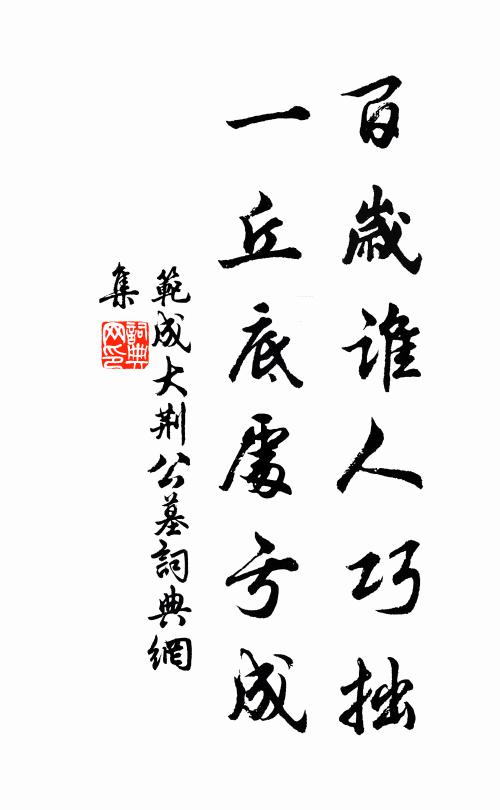 百歲誰人巧拙
一丘底處亏成
範成大荆公墓詞典網
集
詞典
网印